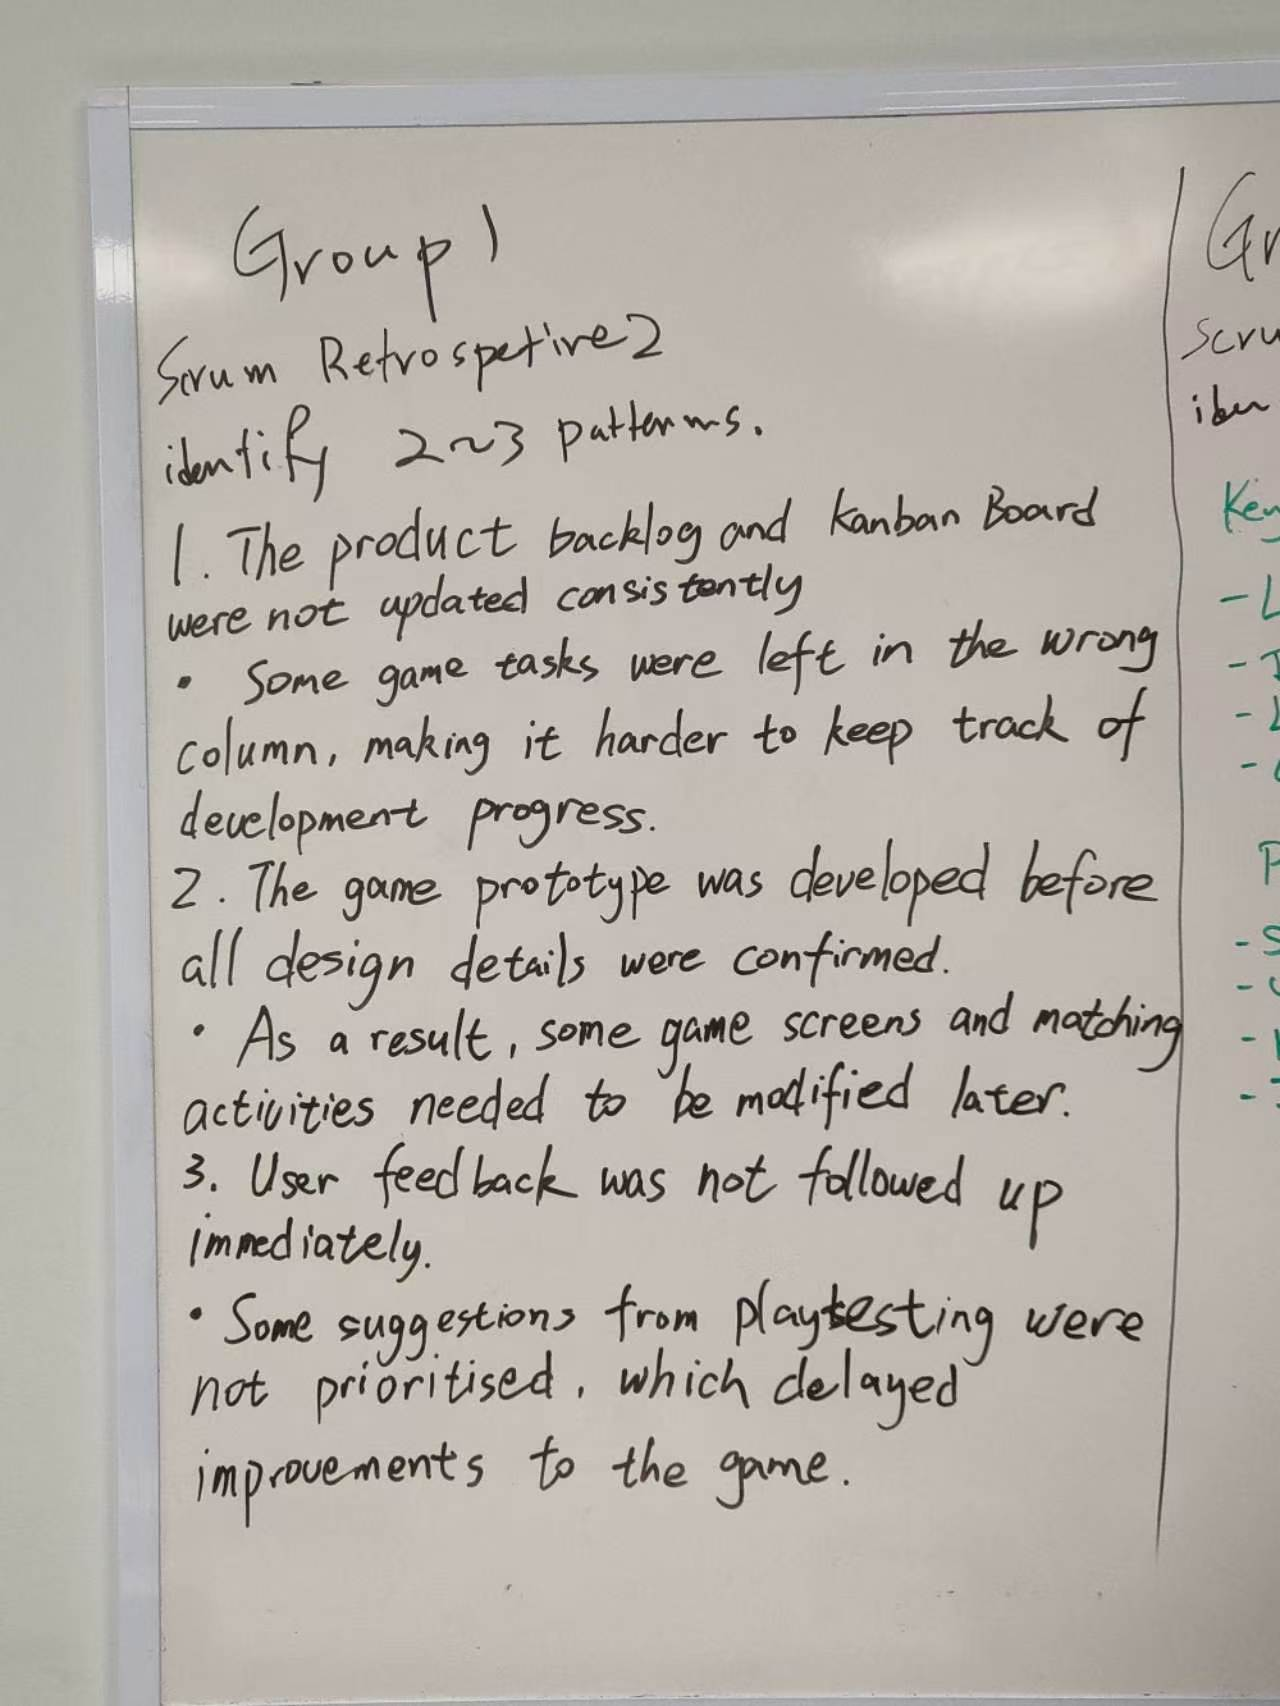 Group 1
Scrum Retrospetive 2
identify 2~3 patterns.
1. The product backlog and Kanban Board
were not updated consistently
• Some game tasks were left in the wrong
column, making it harder to keep track of
development progress.
2. The game prototype was developed before
all design details were confirmed.
• As a result, some game screens and matching
activities needed to be modified later.
3. User feedback was not followed up
immediately.
• Some suggestions from playtesting were
not prioritised, which delayed
improvements to the game.